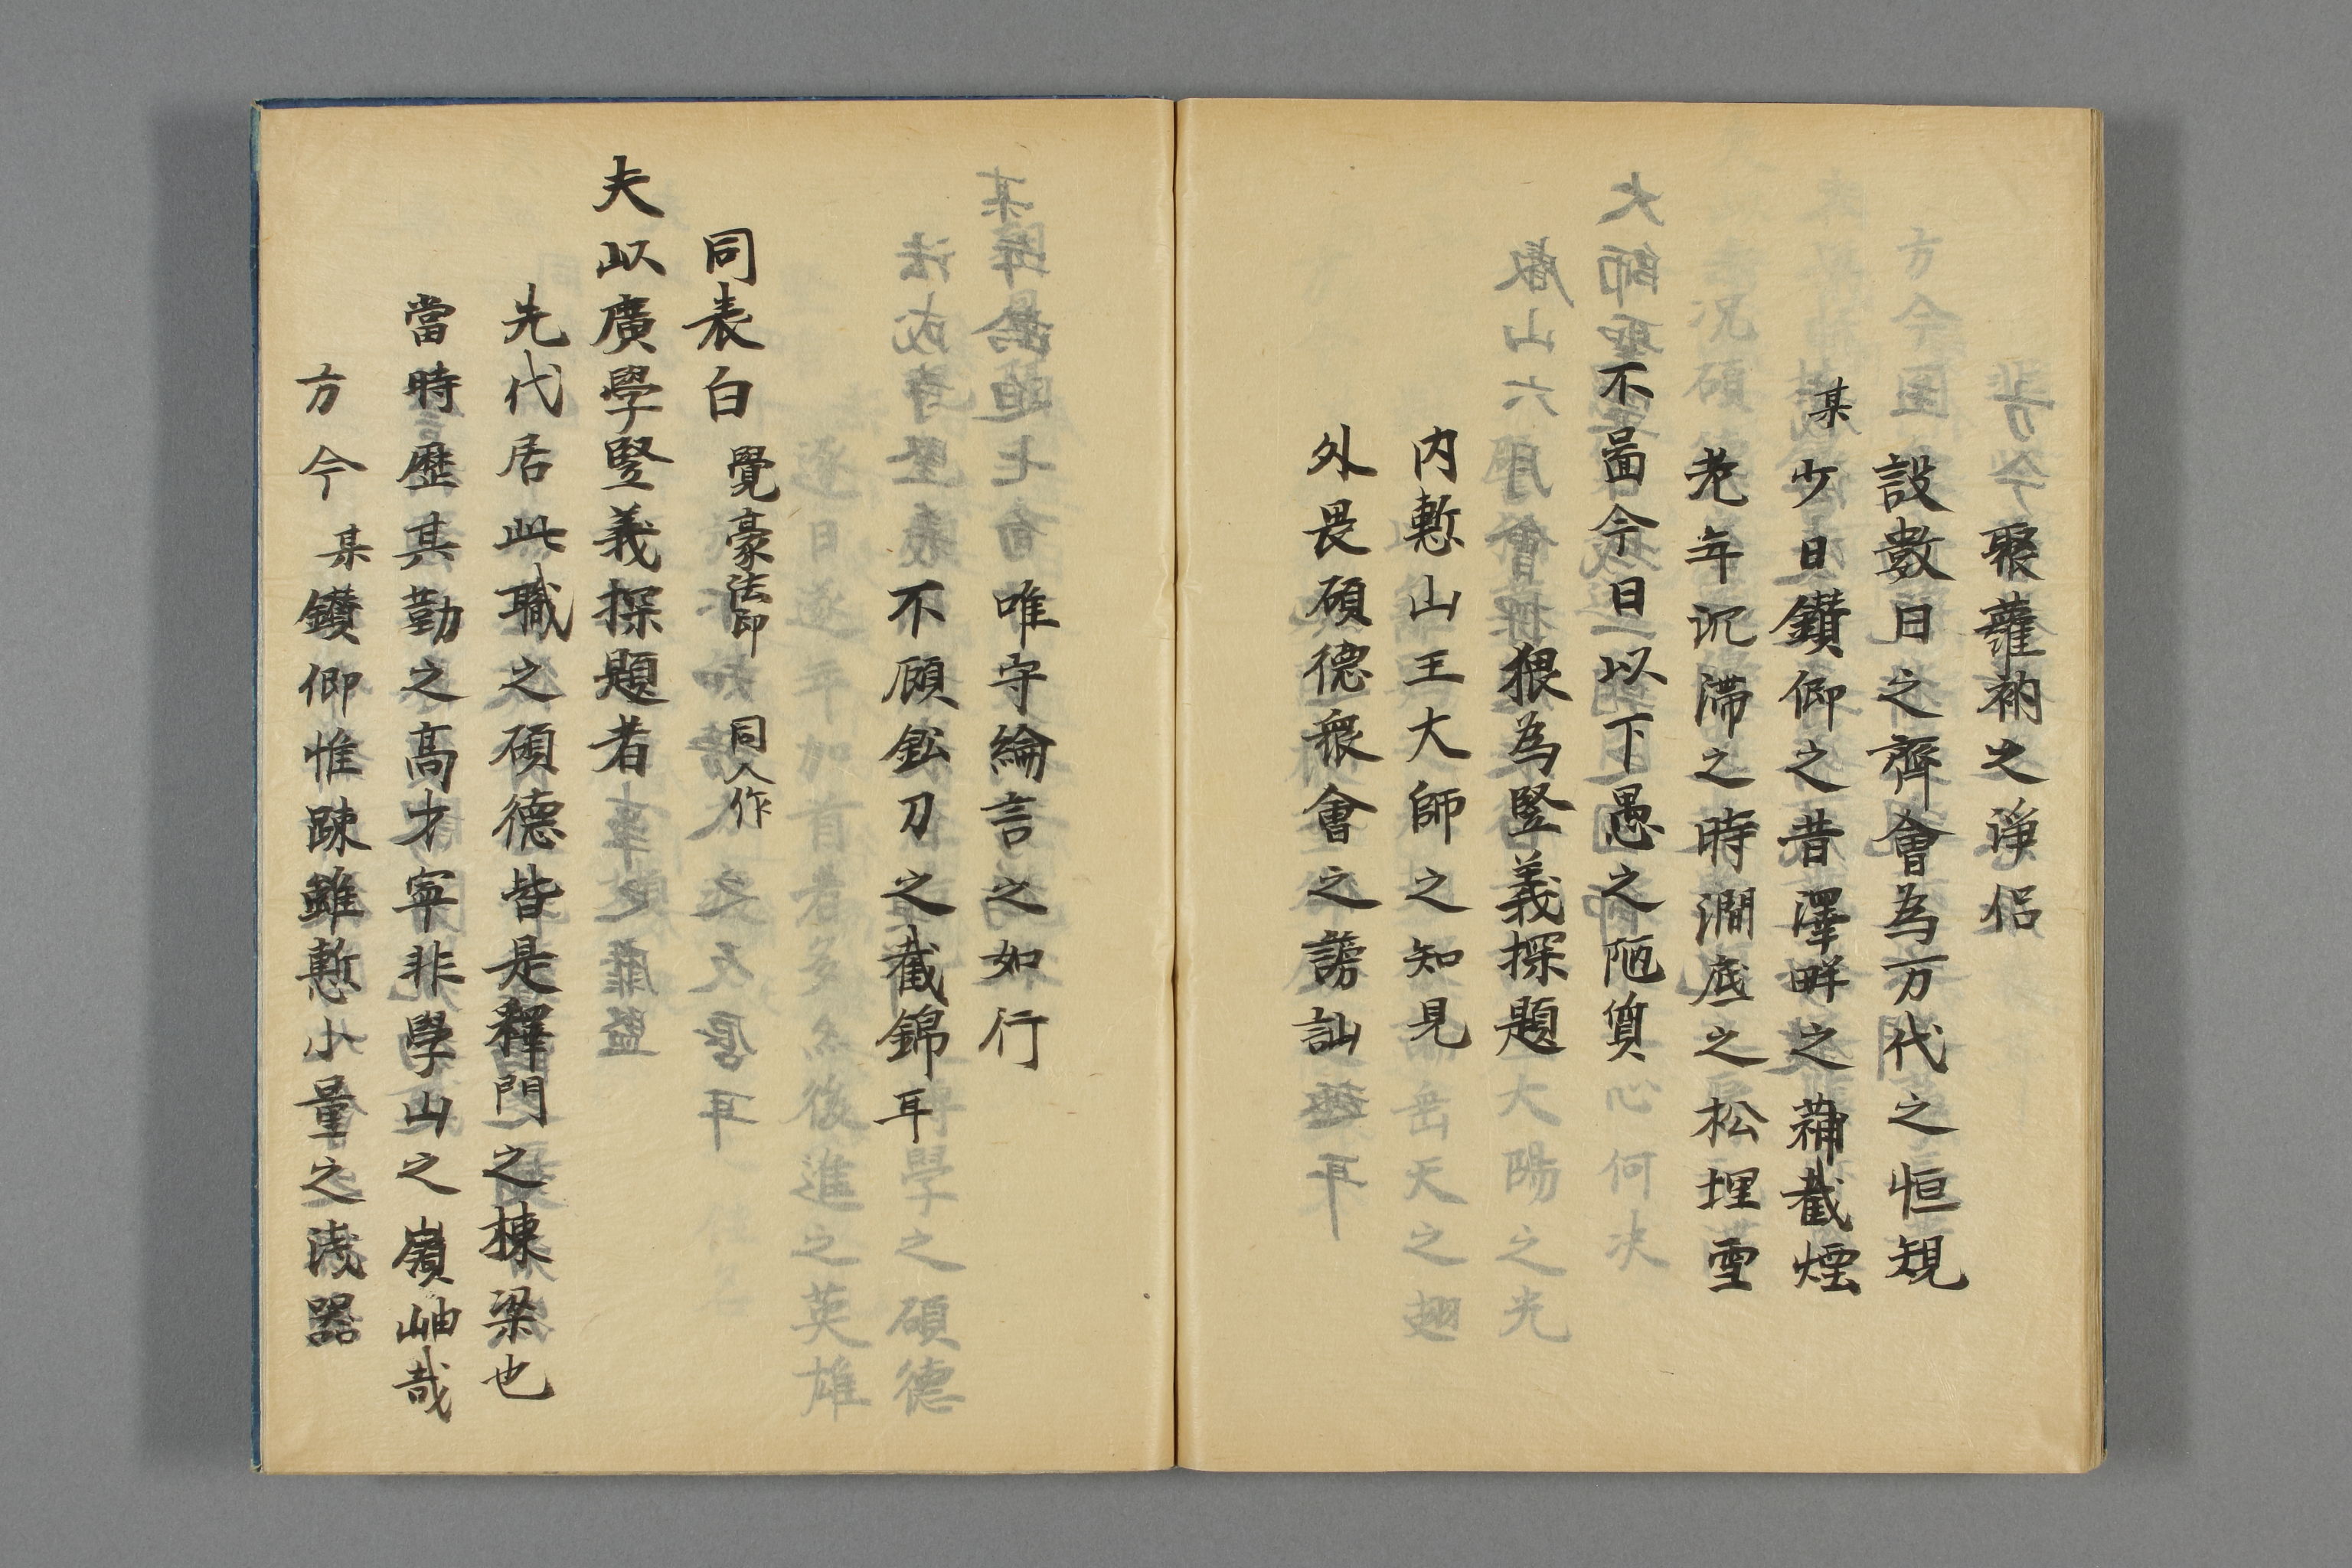 聚蘿衲之淨侶
設數日之齊會為万代之恒規
某少日鑽仰之昔澤畔之蒲截煙
老年沉滯之時澗底之松埋雪
不啚今日以下愚之陋質
猥為竪義探題
內慙山王大師之知見
外畏碩德衆會之謗訕
唯守綸言之如行
不顧鈆刀之截錦耳
同表白 覺豪法印 同人作
夫以廣學竪義探題者
先代居此職之碩德皆是釋門之棟梁也
當時歷其勤之高才寧非學山之嶺岫哉
方今某鑽仰惟疎雖慙小量之淺器